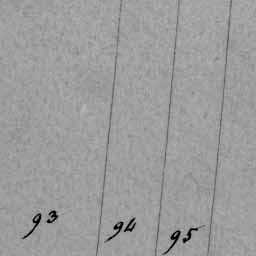 93 94 95